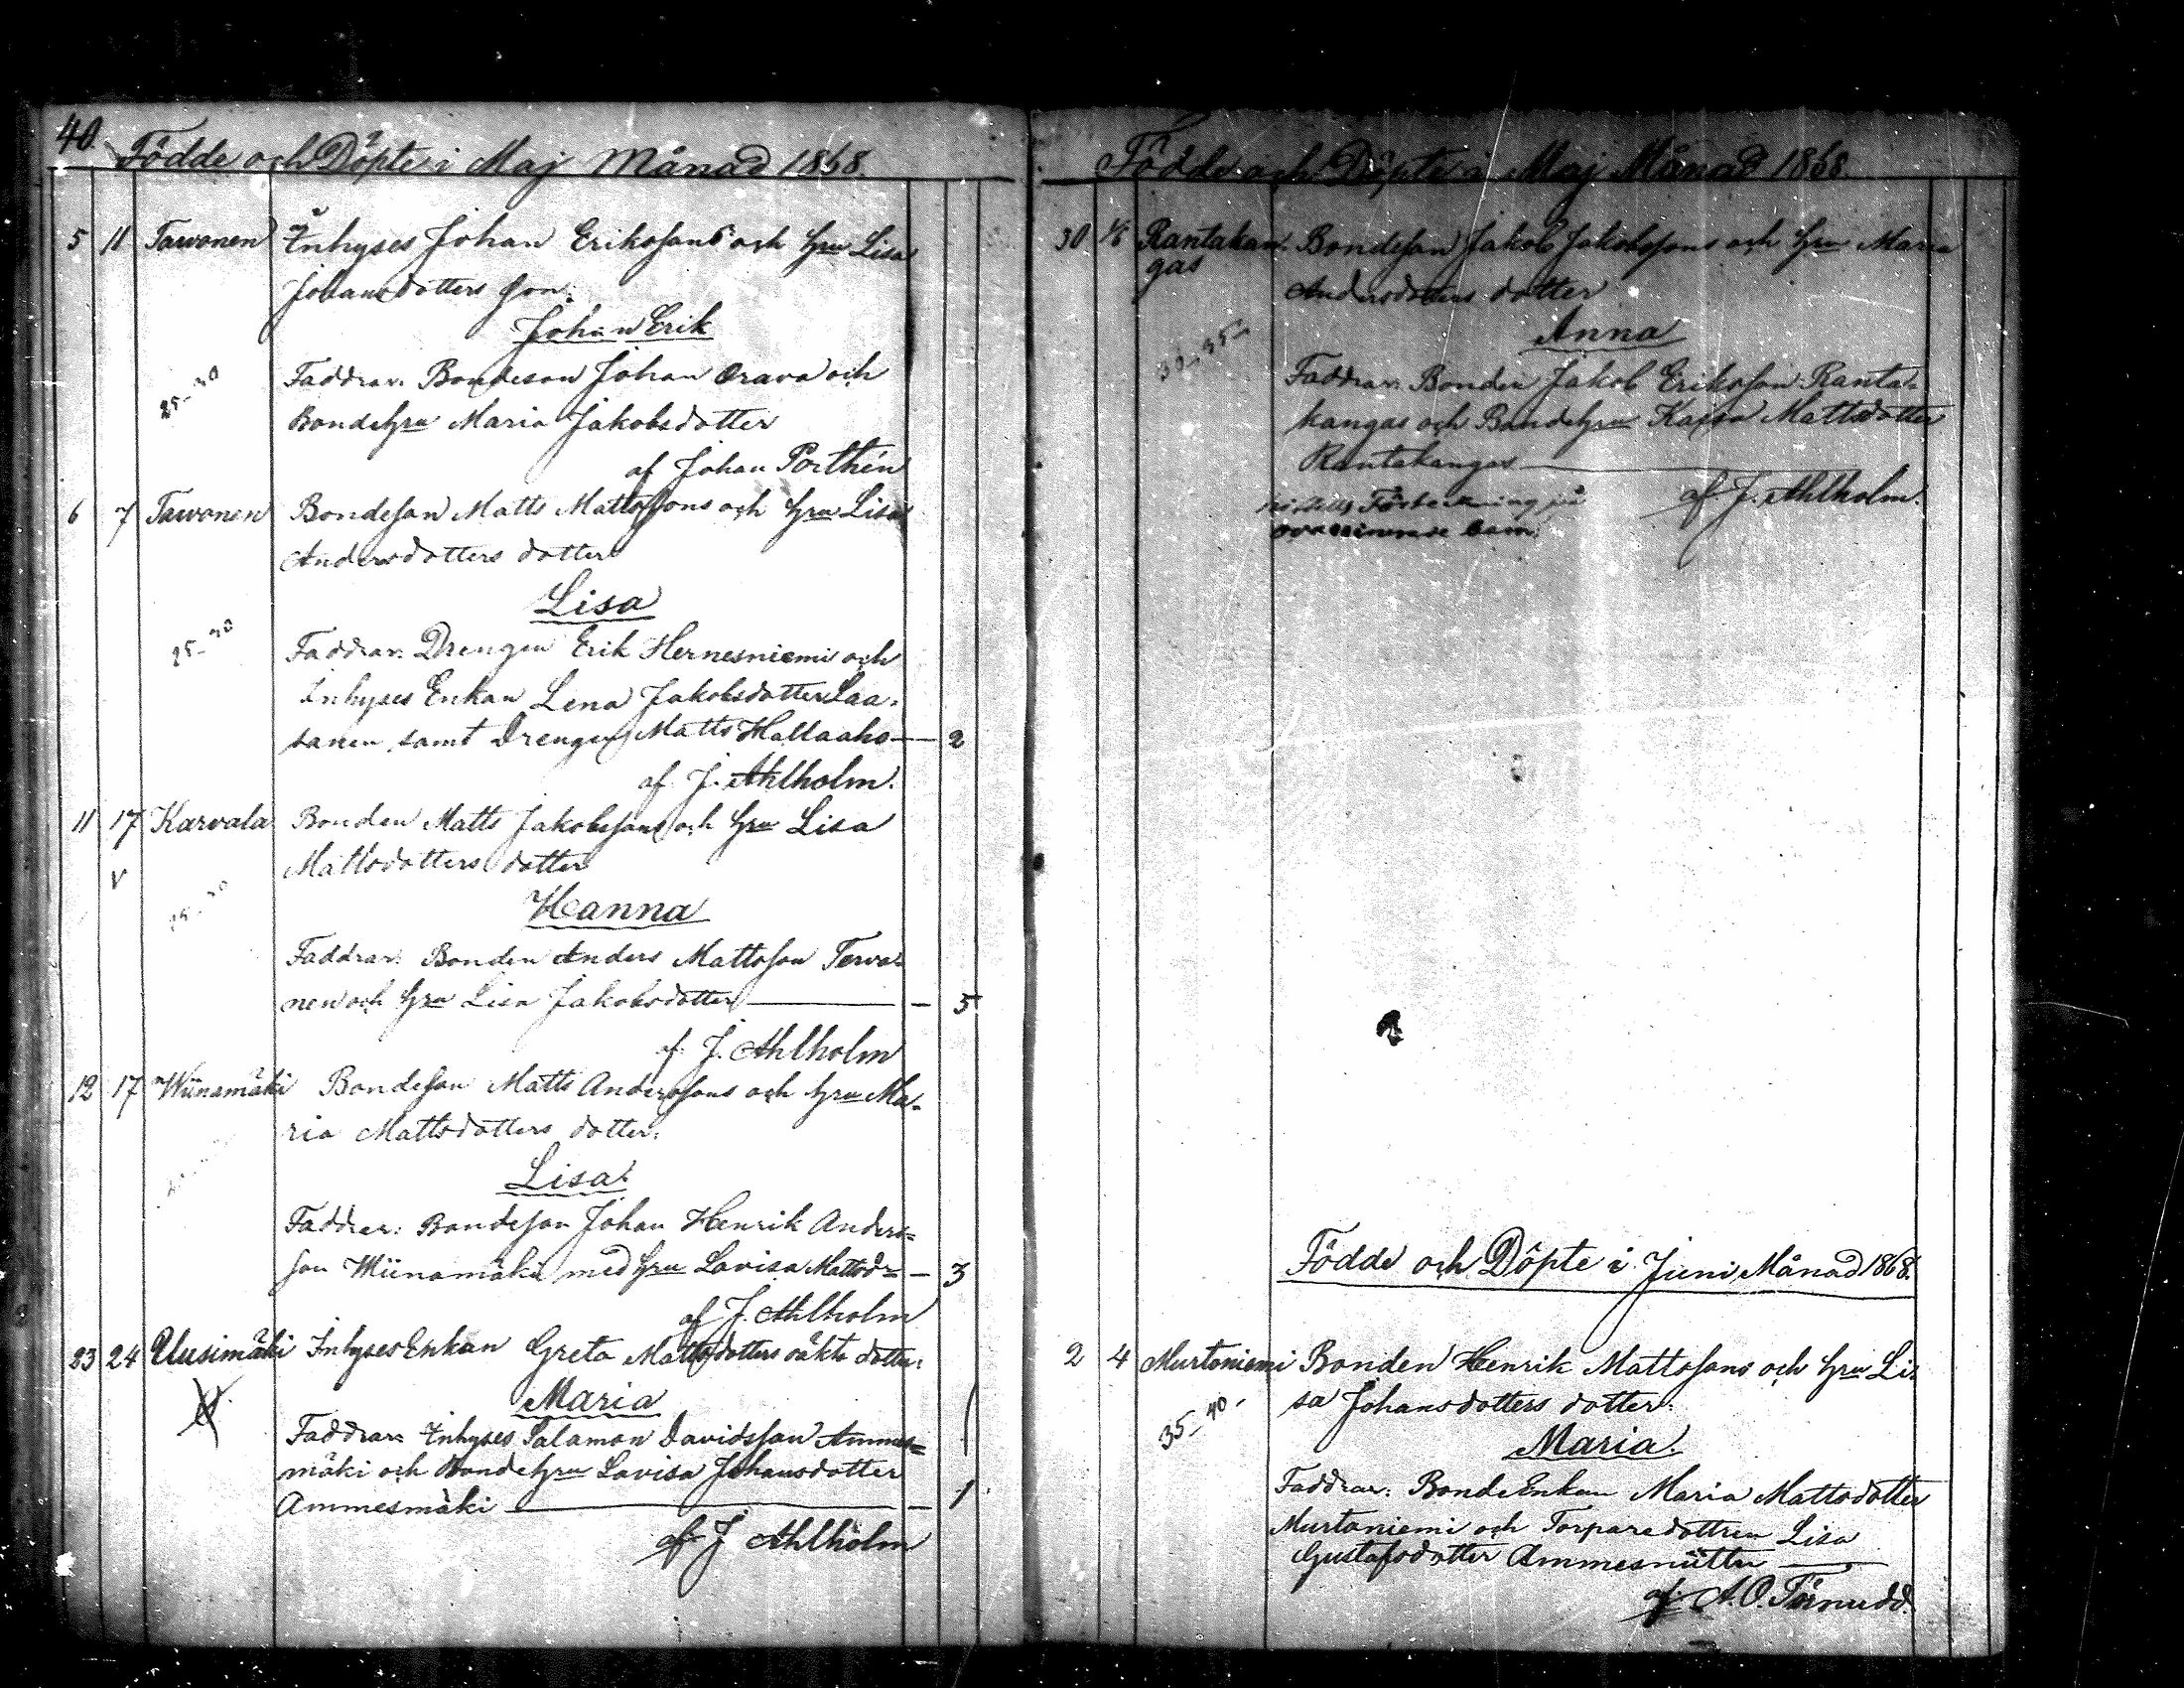 40.
Födde och Döpte i Maj Månad 1868.
5 11 Tawonen Inhyses Johan Erikssons och hru Lisa
Johansdotters son:
Johan Erik
25-30
Faddrar: Bondeson Johan Orava och
Bondehru Maria Jakobsdotter
af Johan Porthén
6 7 Tawonen Bondeson Matts Mattssons och hru Lisa
Andersdotters dotter
Lisa
25-30
Faddrar: Drengen Erik Hernesniemi och
Inhyses Enkan Lena Jakobsdotter Laa-
sanen, samt Drengen Matts Hallaaho — 2
af J. Ahlholm.
11 17 Karvala Bonden Matts Jakobssons och hru Lisa
Mattsdotters dotter
v
Hanna
25-30
Faddrar: Bonden Anders Mattsson Terva-
nen och hru Lisa Jakobsdotter — 5
af J. Ahlholm
12 17 Wiinamäki Bondeson Matts Anderssons och hru Ma-
ria Mattsdotters dotter:
Lisa.
Faddrar: Bondeson Johan Henrik Anders-
son Wiinamäki med hru Lovisa Mattsdr — 3
af J. Ahlholm
23 24 Uusimäki Inhyses Enkan Greta Mattsdotters oäkta dotter:
Maria
Faddrar: Inhyses Salamon Davidsson Ammes-
mäki och Bondehru Lovisa Johansdotter
Ammesmäki — 1.
af J Ahlholm
Födde och Döpte i Maj Månad 1868.
30 1/6 Rantakan- Bondeson Jakob Jakobssons och hru Maria
gas
Andersdotters dotter
Anna
30-35
Faddrar: Bonden Jakob Eriksson Ranta-
kangas och Bondehru Kajsa Mattsdotter
Rantakangas
af J. Ahlholm.
Förteckning på
barn.
Födde och Döpte i Juni Månad 1868.
2 4 Murtoniemi Bonden Henrik Mattssons och hru Li-
sa Johansdotters dotter:
35-40-
Maria.
Faddrar: BondeEnkan Maria Mattsdotter
Murtoniemi och Torparedottren Lisa
Gustafsdotter
af A. O. Törnudd.